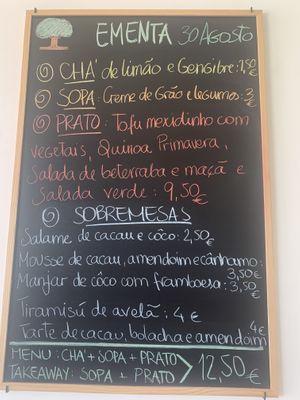 EMENTA 30 AGOSTO
CHÁ de limão e Gengibre: 1,50 €
SOPA: Creme de Grão e legumes: 3 €
PRATO: Tofu mexidinho com
vegetais, Quinoa Primavera,
Salada de beterraba e maçã e
Salada verde: 9,50 €
SOBREMESAS
Salame de cacau e côco: 2,50 €
Mousse de cacau, amendoim e cânhamo:
3,50 €
Manjar de côco com framboesa: 3,50 €
Tiramisú de avelã: 4 €
Tarte de cacau, bolacha e amendoim 4 €
MENU: CHÁ + SOPA + PRATO
TAKEAWAY: SOPA + PRATO > 12,50 €